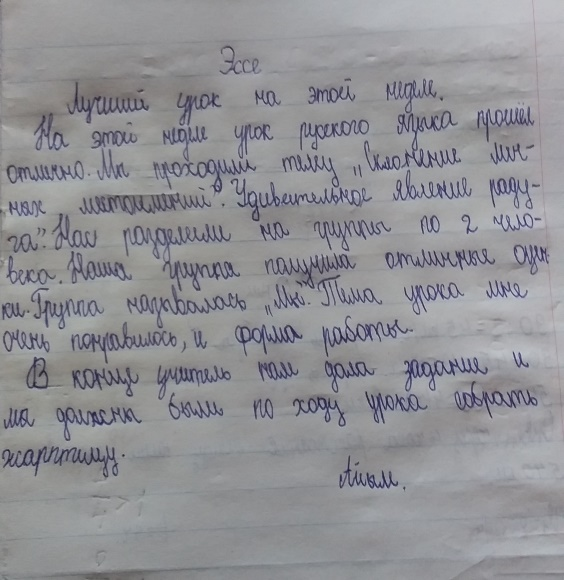 Эссе
Лучший урок на этой неделе.
На этой неделе урок русского языка прошёл
отлично. Мы проходили тему „Склонение лич-
ных местоимений". Удивительное явление раду-
га". Нас разделили на группы по 2 чело-
века. Наша группа получила отличные оцен
ки. Группа называлась „Мы". Тема урока мне
очень понравилось, и форма работы.
В конце учитель нам дала задание и
мы должны были по ходу урока собрать
жарптицу.
Айым.